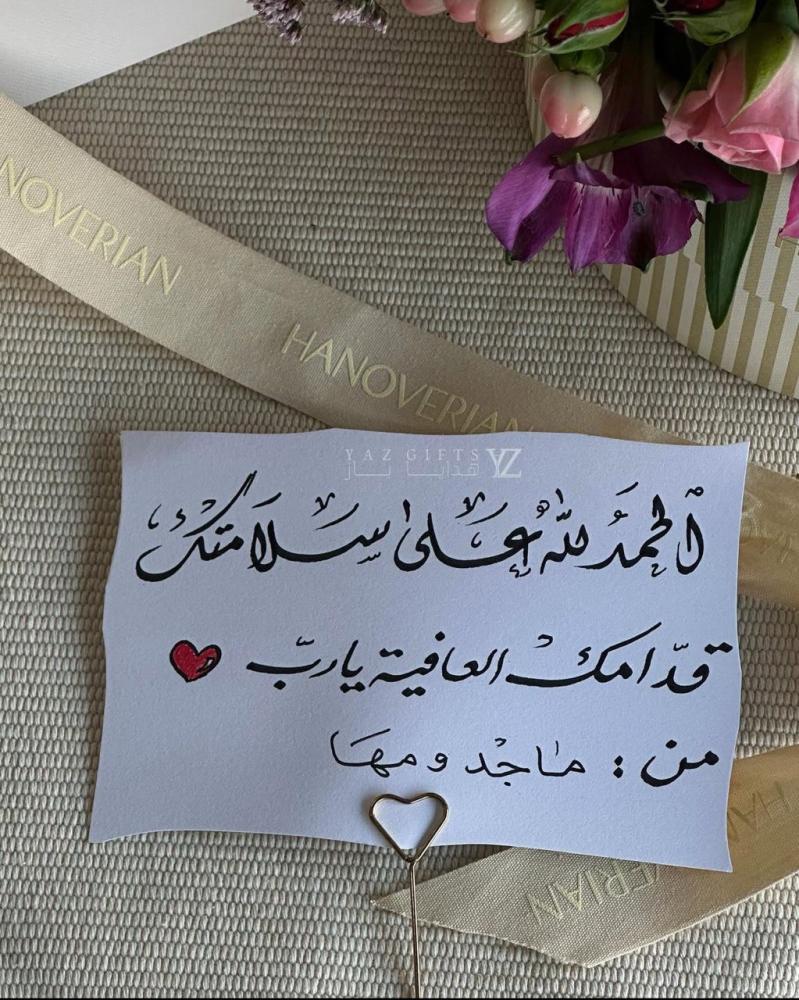 HANOVERIAN
HANOVERIAN
YAZ GIFTS YZ
هدايا ياز
الحمد لله على سلامتك
قدّامك العافية يا ربّ
من : ماجد ومها
HANOVERIAN